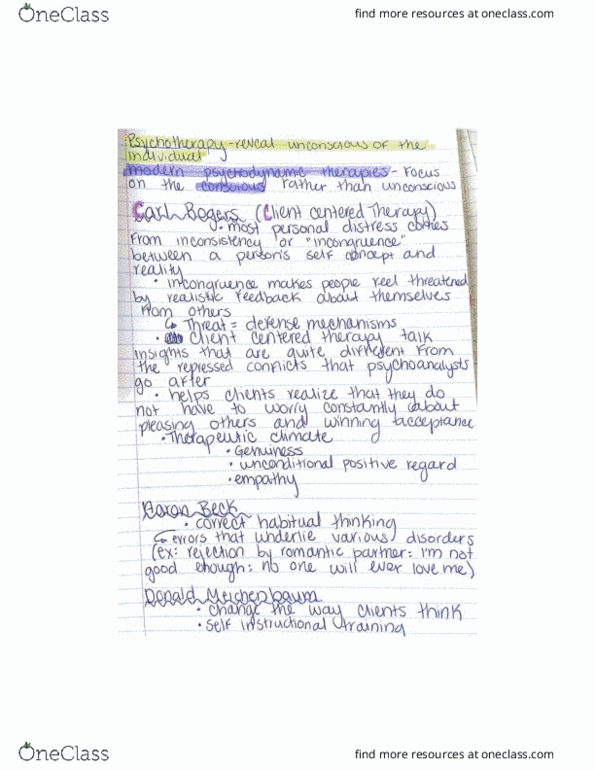 OneClass
find more resources at oneclass.com
Psychotherapy-reveal unconscious of the
individual
modern psychodynamic therapies - Focus
on the conscious rather than unconscious
Carl Rogers (Client centered Therapy)
• most personal distress comes
From inconsistency or "incongruence"
between a person's self concept and
reality
• incongruence makes people feel threatened
by realistic feedback about themselves
from others
↳ Threat = defense mechanisms
• client centered therapy talk
insights that are quite different from
the repressed conflicts that psychoanalysts
go after
• helps clients realize that they do
not have to worry constantly about
pleasing others and winning acceptance
• Therapeutic climate
• Genuiness
• unconditional positive regard
• empathy
Aaron Beck
• correct habitual thinking
↳ errors that underlie various disorders
(ex: rejection by romantic partner: I'm not
good enough: no one will ever love me)
Donald Meichenbaum
• change the way clients think
• self instructional training
OneClass
find more resources at oneclass.com